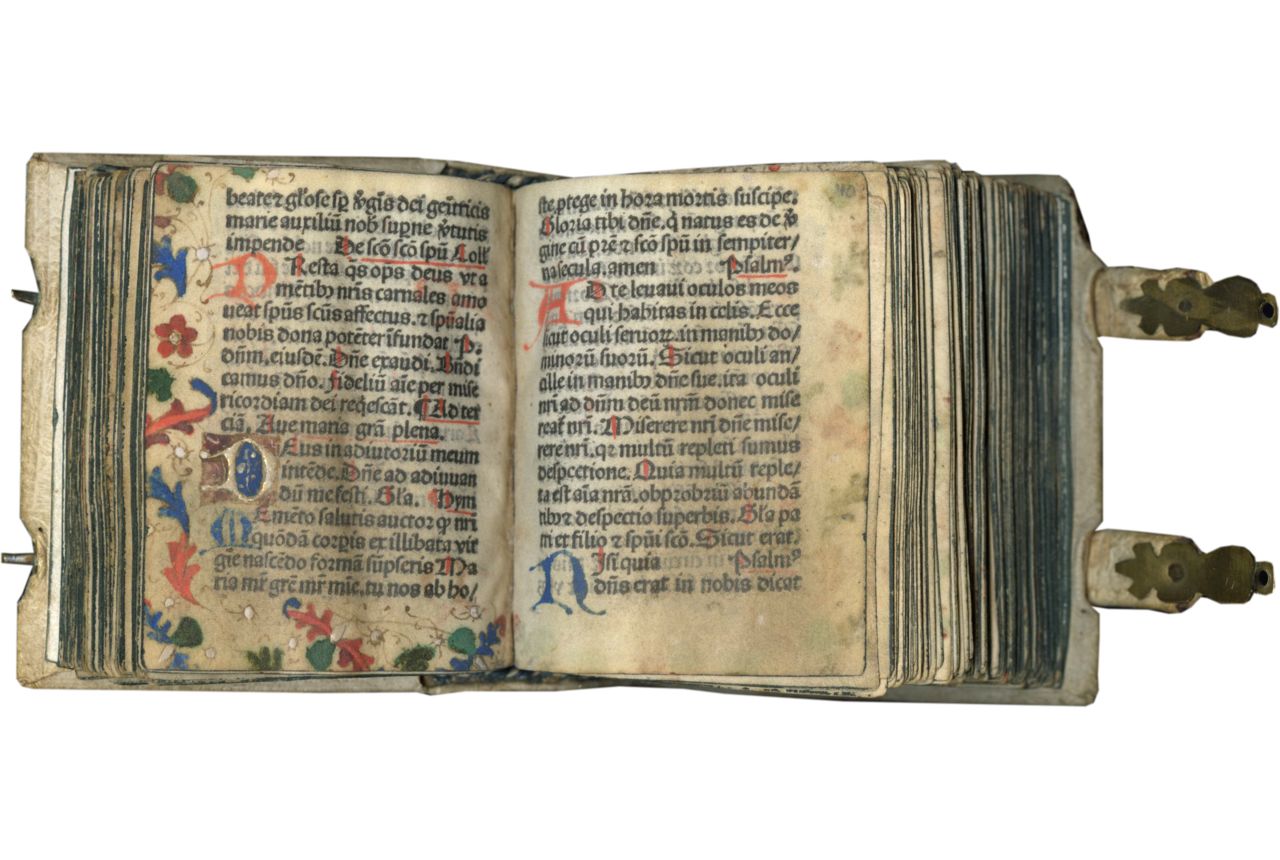 beate ⁊ gl'ose sp̱ v̓gīs dei gēitricis
marie auxiliū nob̄ sup̱ne v̓tutis
impende De scō scō spū Coll'
PResta q̄s op̄s deus vt a
mētib⁹ nr̄is carnales amo
ueat sp̄us scūs affectus. ⁊ sp̄ualia
nobis dona potēter īfundat P.
dn̄m. eiusdē. Dn̄e exaudi. Bn̄di
camus dn̄o. Fideliū aīe per mise
ricordiam dei req̄escāt. ¶ Ad ter
ciā. Aue maria grā plena.
DEus in adiutoriū meum
intēde. Dn̄e ad adiuuan
dū me festi. Gl'a. Hym
MEmēto salutis auctor q̄ nr̄i
quōdā corp̱is ex illibata vir
gīe nascēdo formā sūpseris Ma
ria mr̄ grē mr̄ mīe. tu nos ab ho/
ste ꝓtege in hora mortis suscipe.
Gloria tibi dn̄e. q̄ natus es de v̓
gine cū pr̄e ⁊ scō spū in sempiter/
na secula. amen Psalm⁹.
AD te leuaui oculos meos
qui habitas in celis. Ecce
sicut oculi seruoꝝ in manib⁹ do/
minorū suorū. Sicut oculi an/
cille in manib⁹ dn̄e sue. ita oculi
nr̄i ad dn̄m deū nr̄m donec mise
reat̄ nr̄i. Miserere nr̄i dn̄e mise/
rere nr̄i. qꝛ multū repleti sumus
despectione. Quia multū reple/
ta est aīa nr̄a. obprobriū abundā
tib⁹ ⁊ despectio superbis. Gl'a pa
tri et filio ⁊ spūi scō. Sicut erat/
NIsi quia Psalm⁹
dn̄s erat in nobis dicat